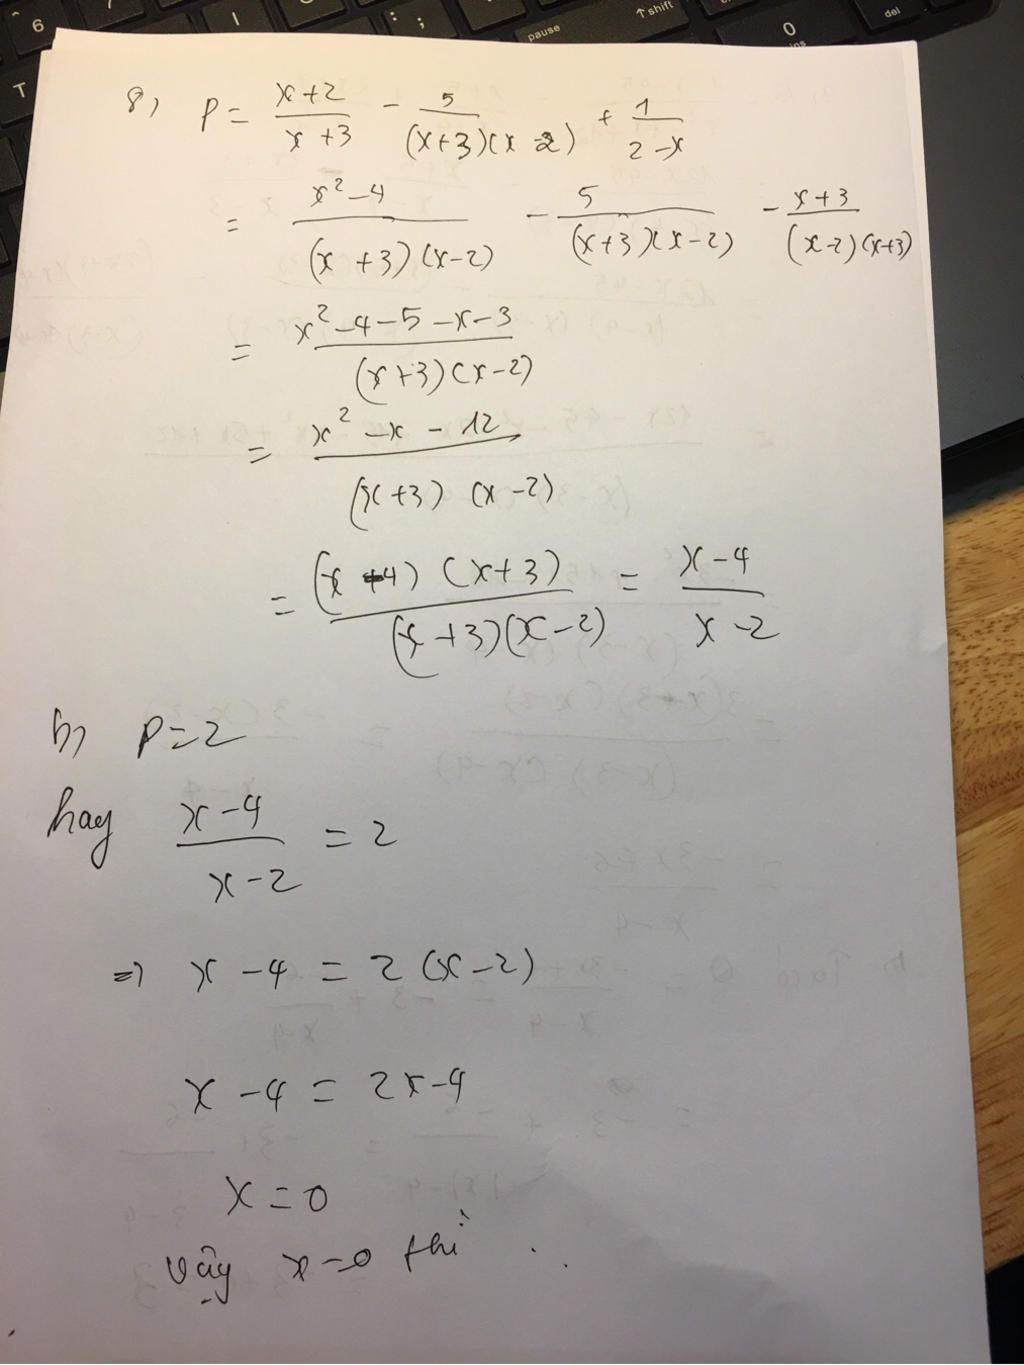 ^ 6
: ;
pause
↑ shift
0
ins
del
T
8) P = \frac{x+2}{x+3} - \frac{5}{(x+3)(x-2)} + \frac{1}{2-x}
= \frac{x^2-4}{(x+3)(x-2)} - \frac{5}{(x+3)(x-2)} - \frac{x+3}{(x-2)(x+3)}
= \frac{x^2-4-5-x-3}{(x+3)(x-2)}
= \frac{x^2-x-12}{(x+3)(x-2)}
= \frac{(x-4)(x+3)}{(x+3)(x-2)} = \frac{x-4}{x-2}
b) P=2
hay \frac{x-4}{x-2} = 2
=> x-4 = 2(x-2)
x-4 = 2x-4
x=0
Vậy x=0 thì .